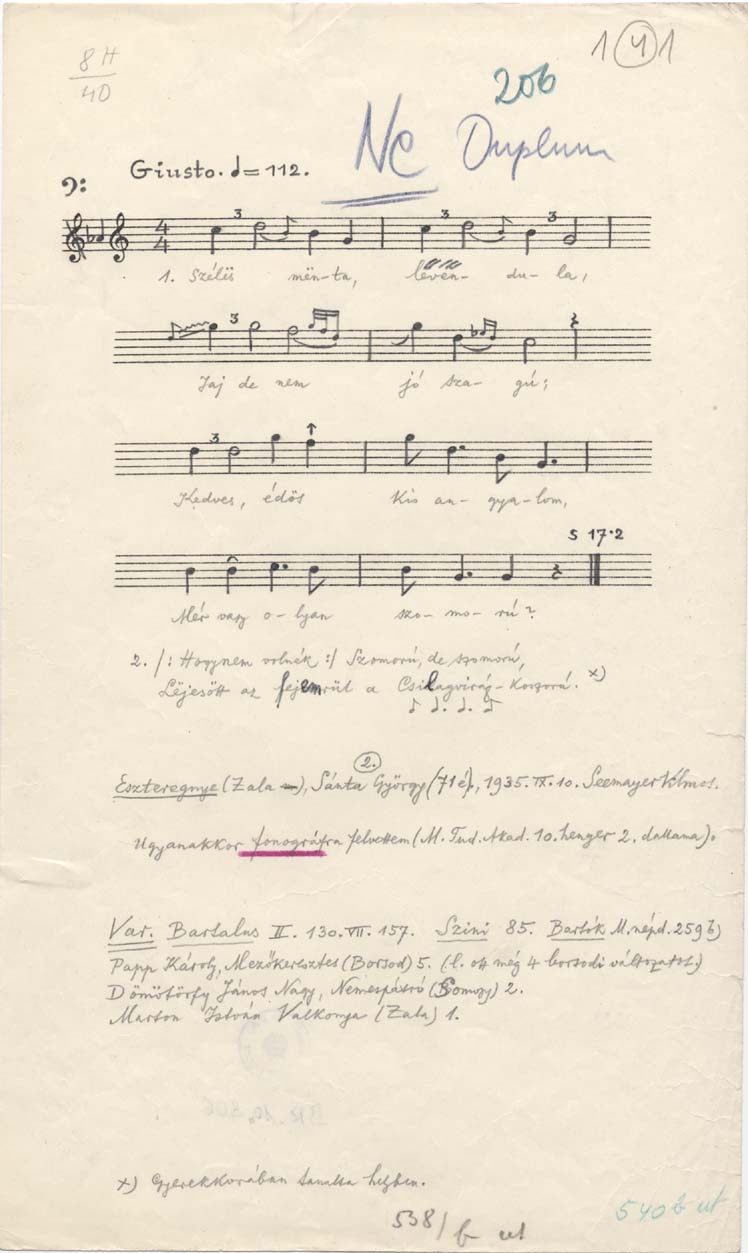 8H
40
1 4 1
206
NC Duplum
Giusto. = 112.
1. Szélës mën-ta, lëvën- du- la,
Jaj de nem jó sza- gú;
Kedves, édös kis an- gya-lom,
S 17·2
Mér vagy o-lyan szo- mo- rú?
2. /: Hogynem volnék :/ Szomorú, de szomorú,
Lëjesött az fejemrül a Csilagvirág-koszorú. x)
2.
Eszteregnye (Zala), Sánta György (71 é), 1935. IX. 10. Seemayer Vilmos.
Ugyanakkor fonográfra felvettem (M. Tud. Akad. 10. henger 2. dallama).
Var. Bartalus II. 130. VII. 157. Szini 85. Bartók M. népd. 259 b)
Papp Károly, Mezőkeresztes (Borsod) 5. (l. ott még 4 borsodi változatot.)
Dömötörfy János Nagy, Nemespátró (Somogy) 2.
Marton István Valkonya (Zala) 1.
x) Gyerekkorában tanulta helyben.
538/b ut
540 b ut